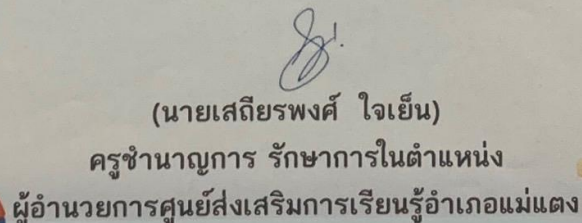 (นายเสถียรพงศ์ ใจเย็น)
ครูชำนาญการ รักษาการในตำแหน่ง
ผู้อำนวยการศูนย์ส่งเสริมการเรียนรู้อำเภอแม่แตง